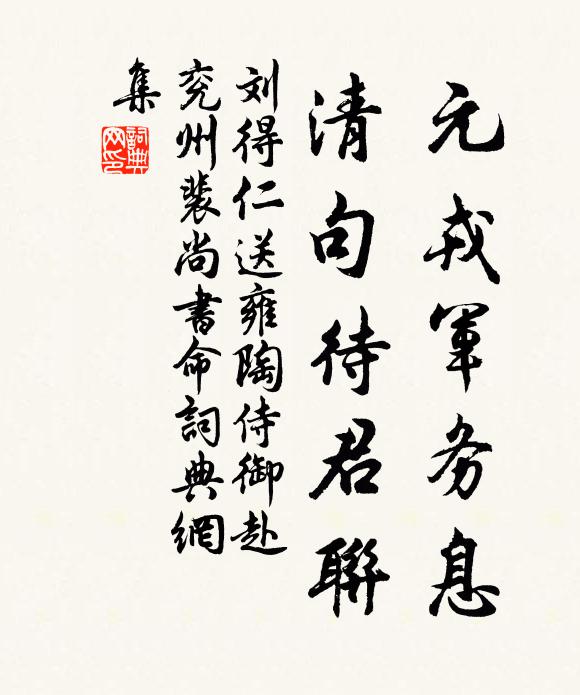 元戎軍务息
清句待君聯
刘得仁送雍陶侍御赴
兖州裴尚書命詞典網
集
詞典
网印